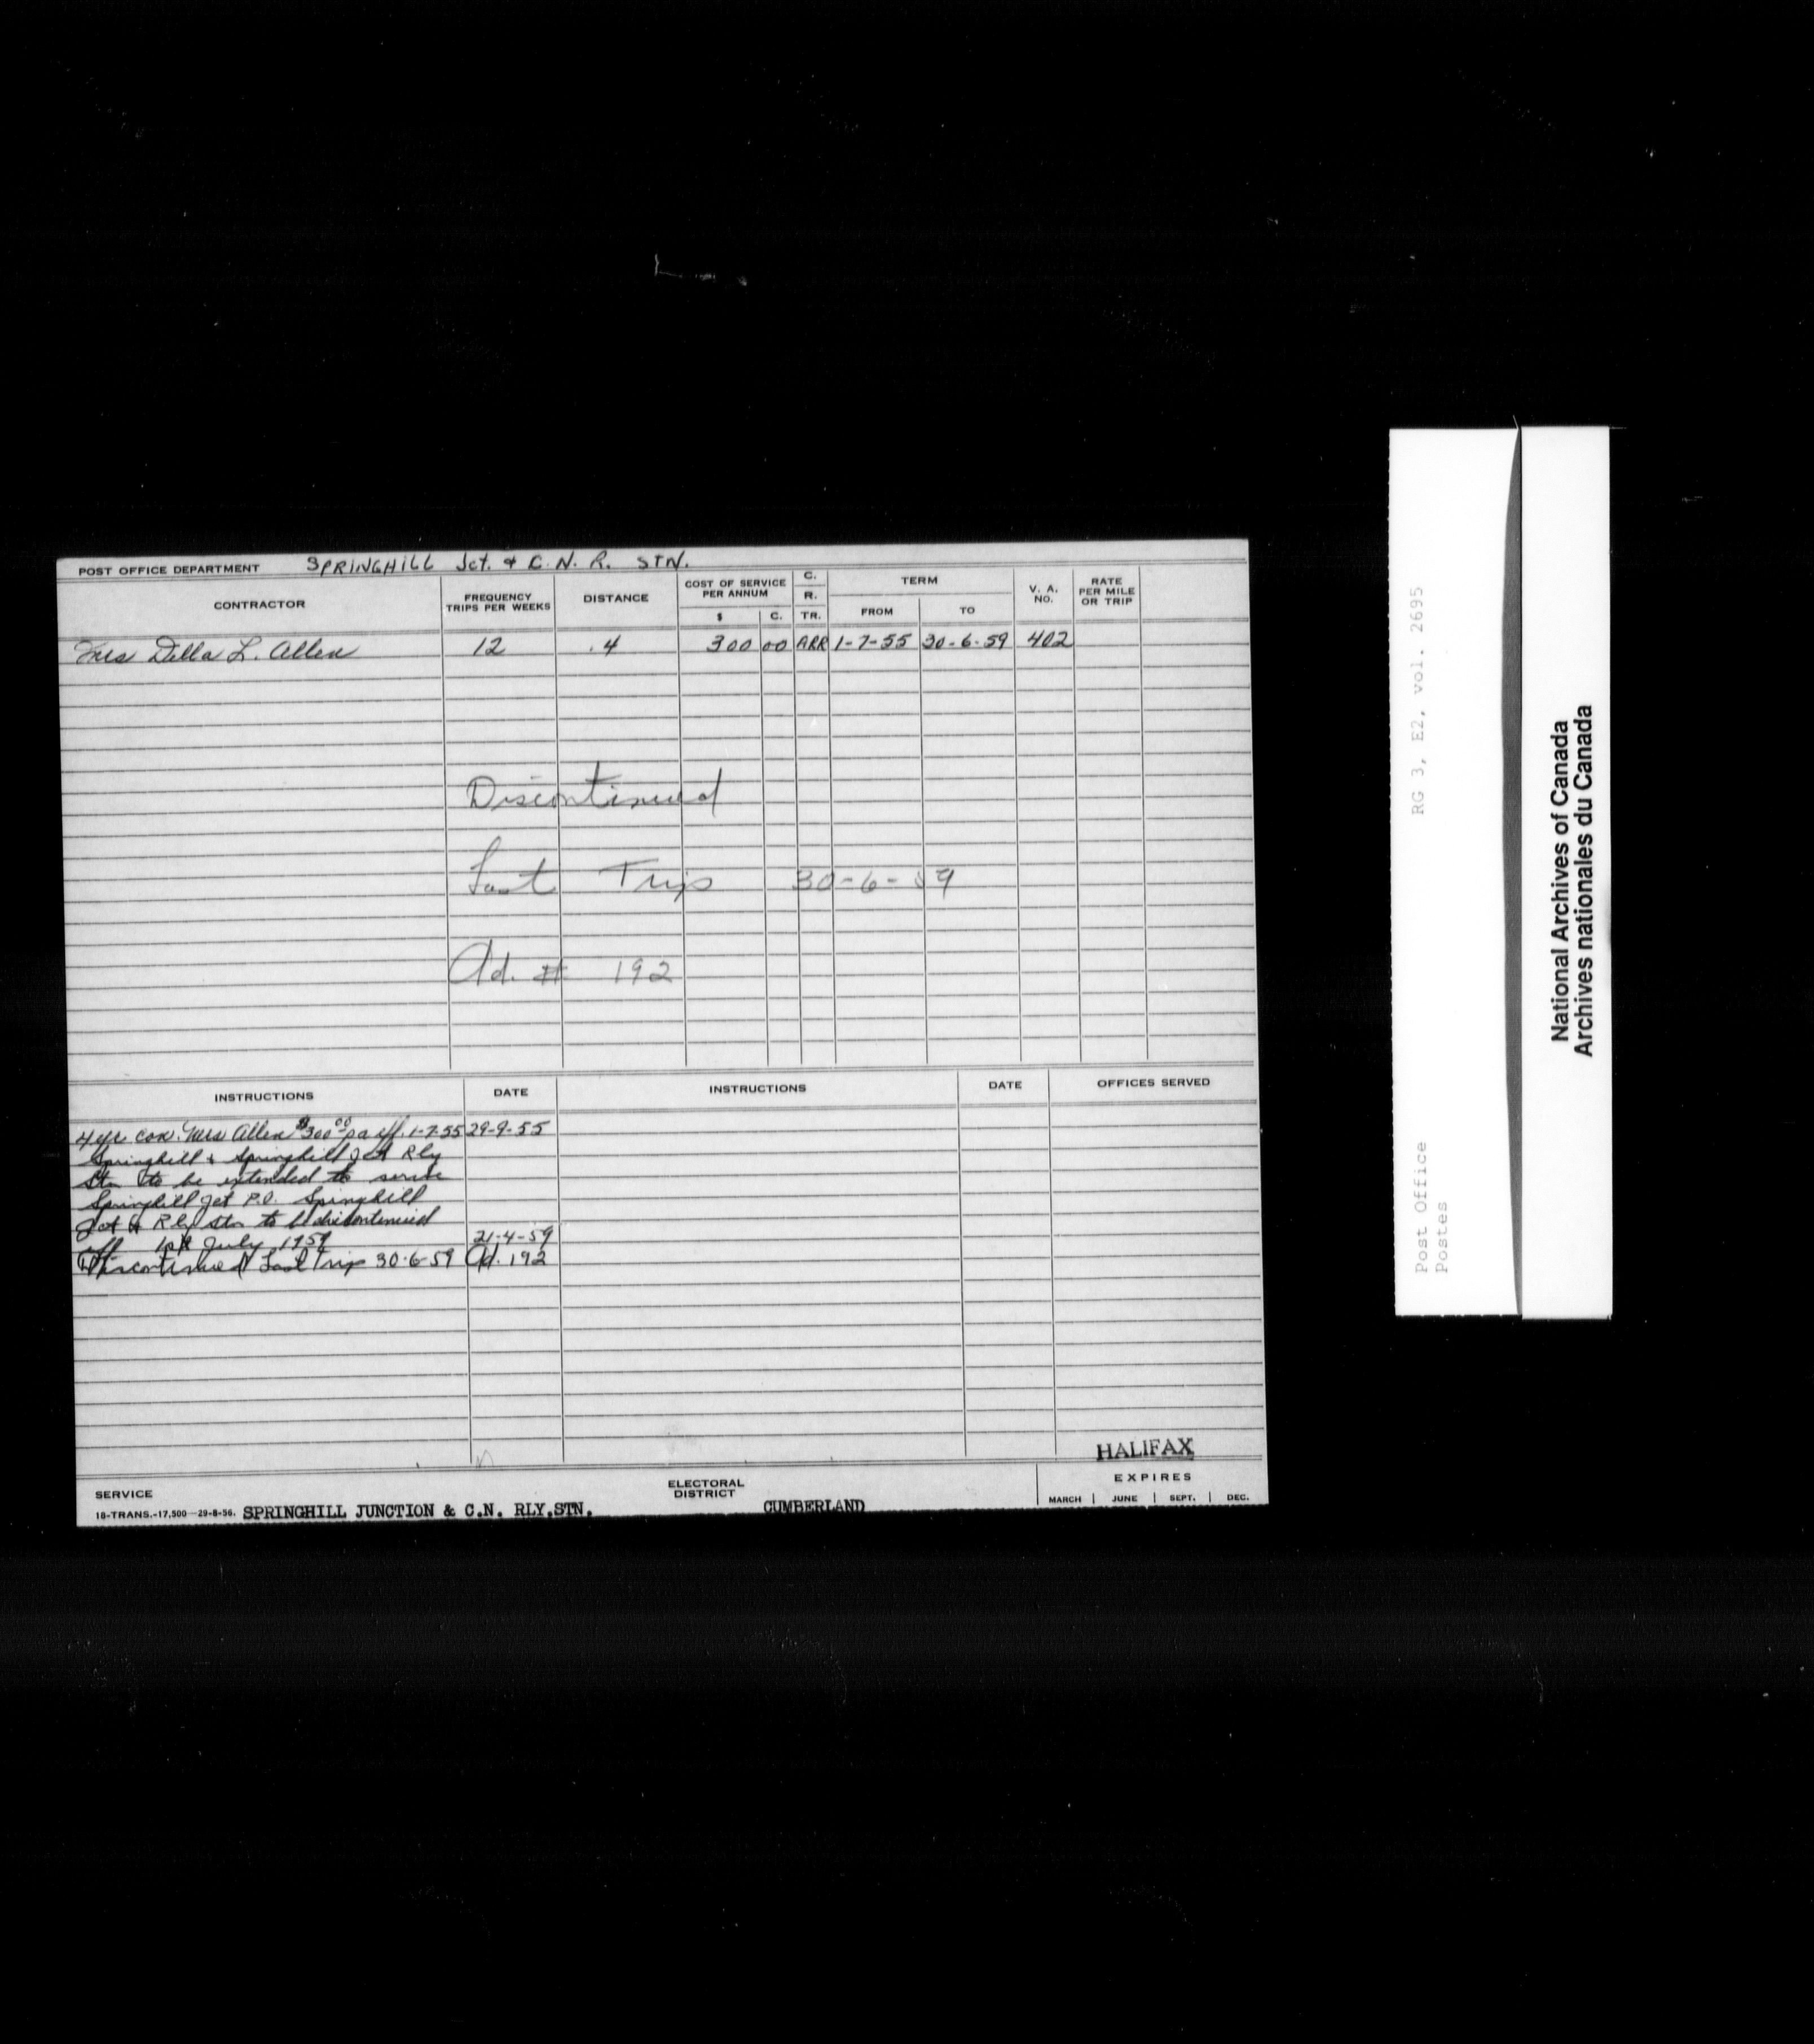 POST OFFICE DEPARTMENT SPRINGHILL Jct. & C.N.R. STN.
CONTRACTOR FREQUENCY TRIPS PER WEEKS DISTANCE COST OF SERVICE PER ANNUM $ C. C. R. TR. TERM FROM TO V. A. NO. RATE PER MILE OR TRIP
Mrs Della L. Allen 12 .4 300 00 ARR 1-7-55 30-6-59 402
Discontinued
Last Trip 30-6-59
Ad. # 192
INSTRUCTIONS DATE INSTRUCTIONS DATE OFFICES SERVED
4 yr. con. Mrs Allen $300.00 pa eff. 1-7-55 29-9-55
Springhill & Springhill Jct Rly
Stn to be extended to serve
Springhill Jct P.O. Springhill
Jct & Rly Stn to be discontinued
eff 1st July 1959 21-4-59
Discontinued Last Trip 30-6-59 Ad. 192
HALIFAX
SERVICE ELECTORAL DISTRICT EXPIRES
18-TRANS.-17,500-29-8-56. SPRINGHILL JUNCTION & C.N. RLY.STN. CUMBERLAND MARCH | JUNE | SEPT. | DEC.
RG 3, E2, vol. 2695
Post Office
Postes
National Archives of Canada
Archives nationales du Canada